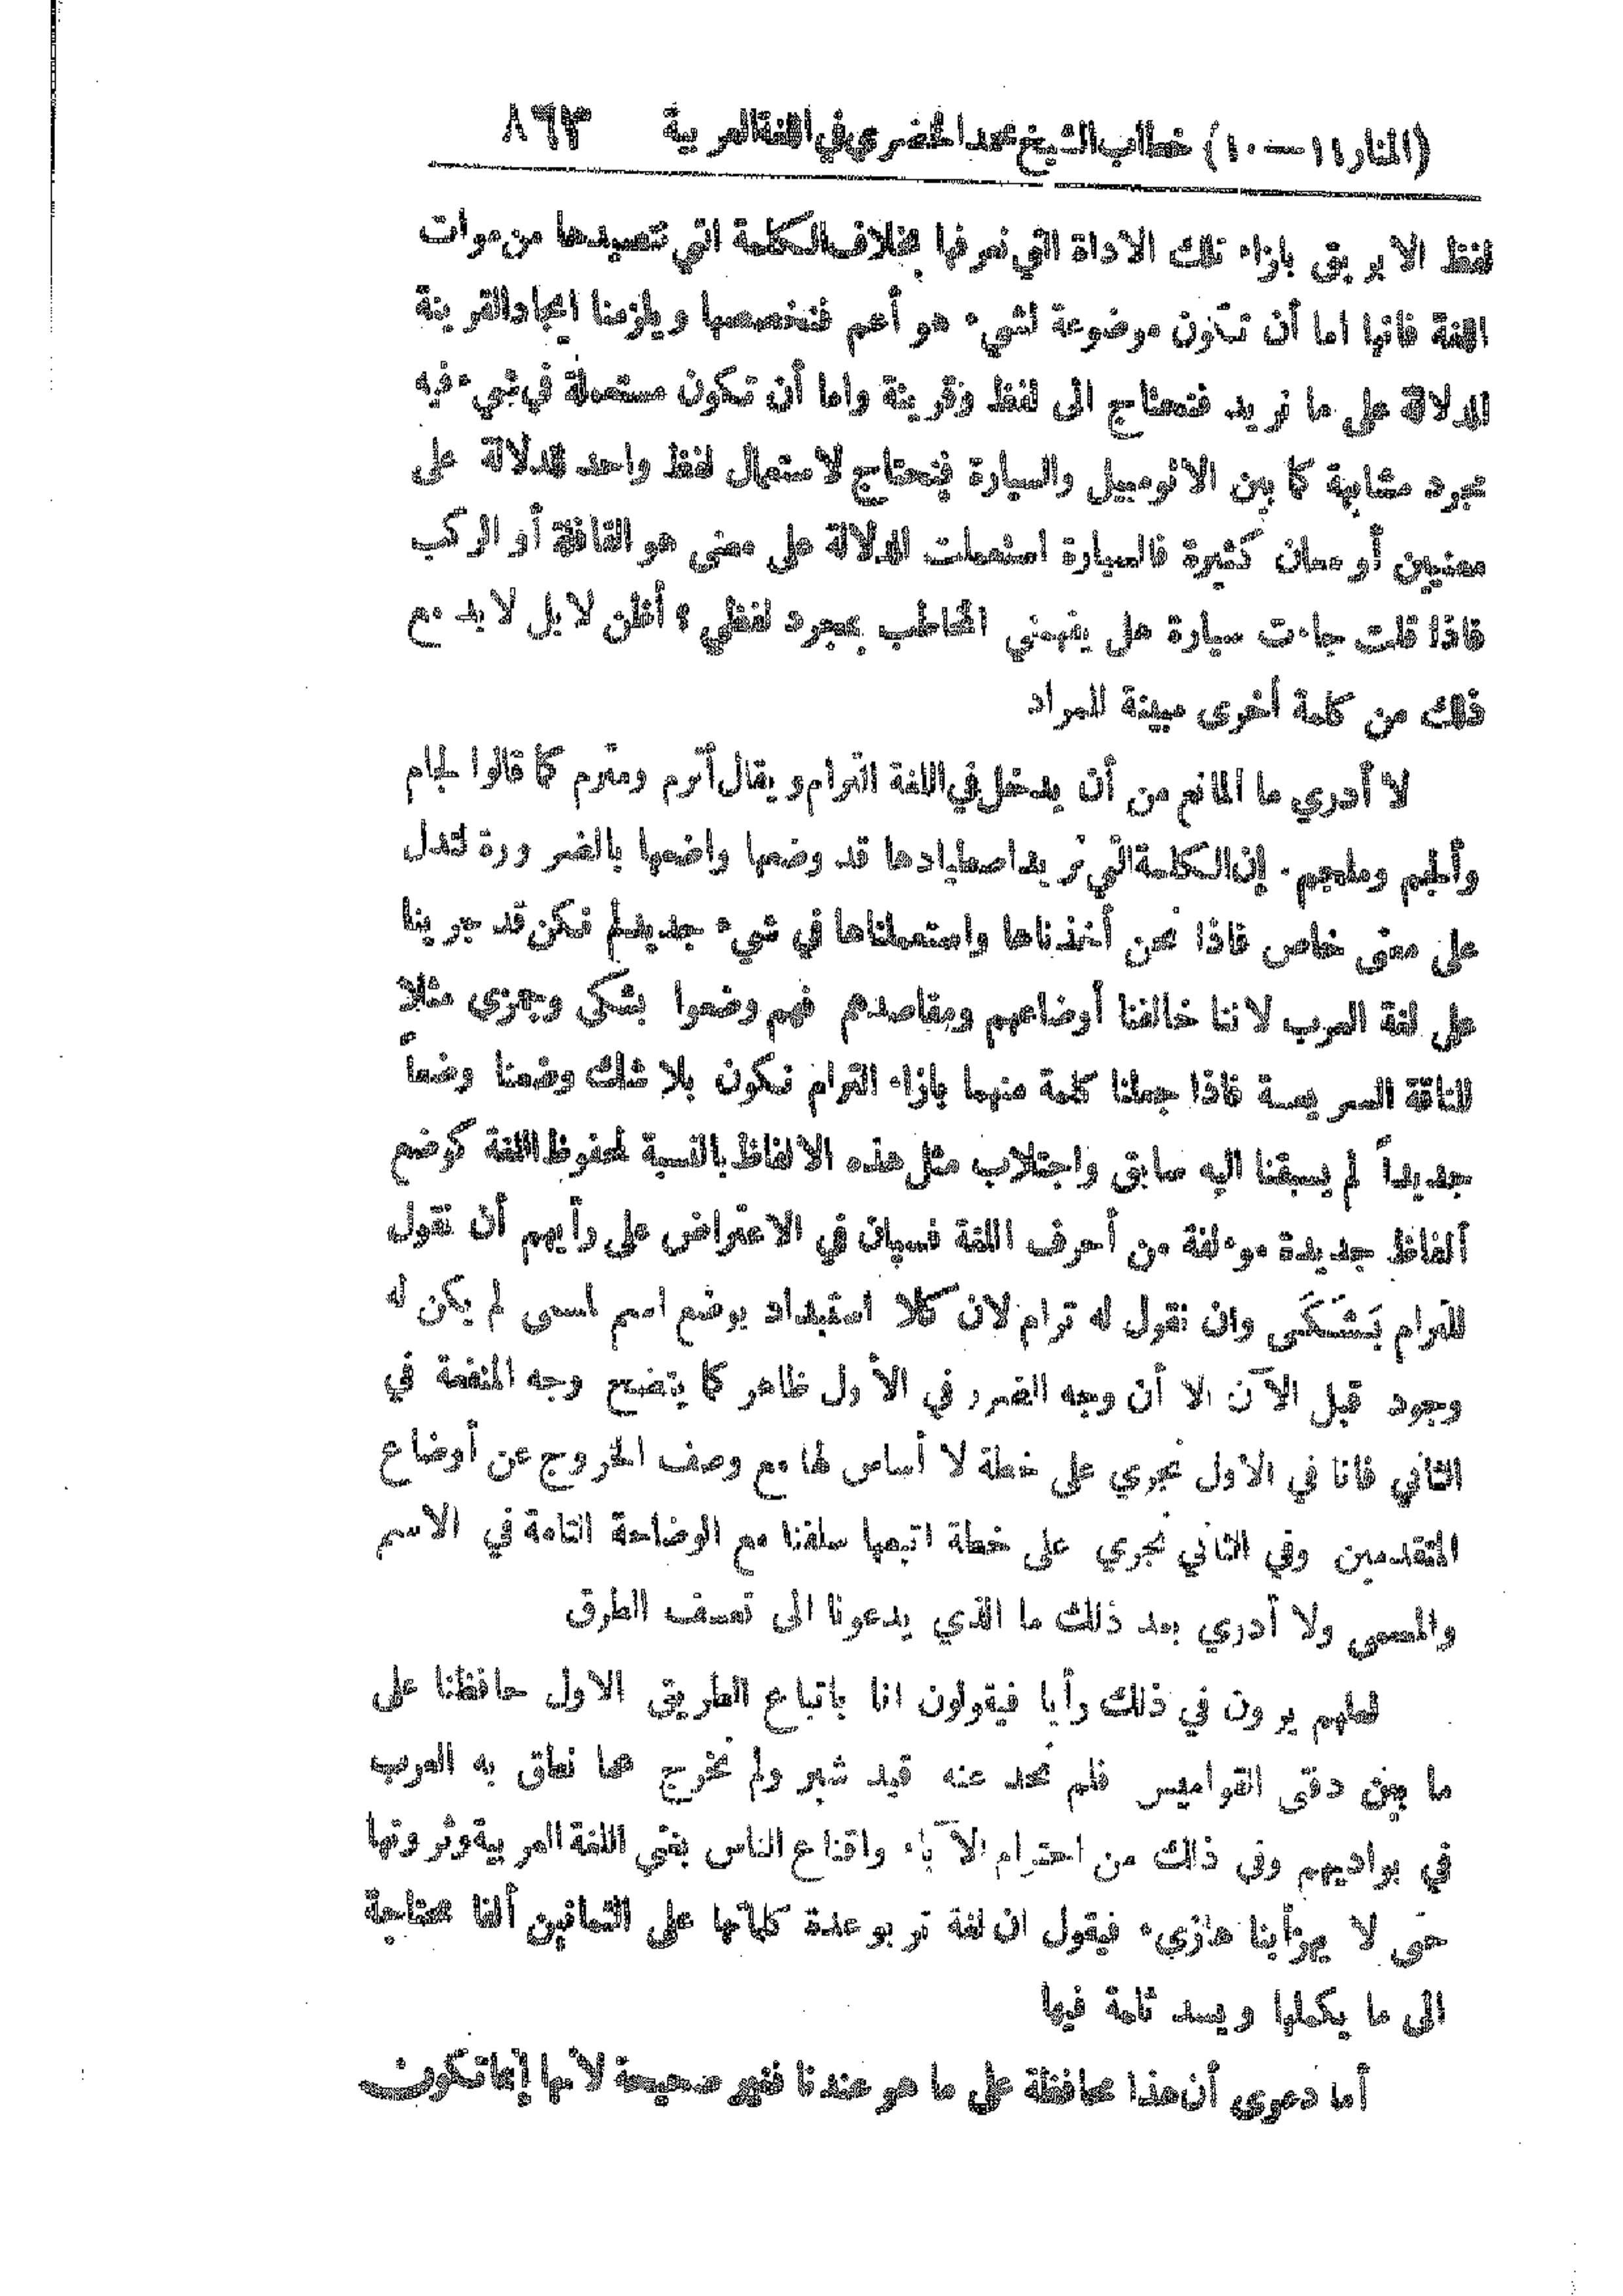 (المنار ١١ – ١٠) خطاب الشيخ محمد الخضري في اللغة العربية ٨٦٣
لفظ الابريق بازاء تلك الاداة التي نعرفها بخلاف الكلمة التي نتصيدها من موات
اللغة فانها اما أن تكون موضوعة لشيء هو أعم فنخصصها ويلزمنا ايجاد القرينة
للدلالة على ما نريد فنحتاج الى لفظ وقرينة واما أن تكون مستعملة في شيء فيه
مجرد مشابهة كما بين الاتومبيل والسيارة فنحتاج لاستعمال لفظ واحد للدلالة على
معنيين أو معان كثيرة فالسيارة استعملت للدلالة على معنى هو القافلة أو الركب
فاذا قلت جاءت سيارة هل يفهمني المخاطب بمجرد لفظي؟ أظن لا بل لا بد مع
ذلك من كلمة أخرى مبينة للمراد
لا أدري ما المانع من أن يدخل في اللغة الترام ويقال أترم ومترم كما قالوا لجام
وألجم وملجم. إن الكلمة التي نريد اصطيادها قد وضعها واضعها بالضرورة لتدل
على معنى خاص فاذا نحن أخذناها واستعملناها في شيء جديد لم نكن قد جرينا
على لغة العرب لاننا خالفنا أوضاعهم ومقاصدهم فهم وضعوا بشكى وجمزى مثلا
للناقة السريعة فاذا جعلنا كلمة منهما بازاء الترام نكون بلا شك وضعنا وضعاً
جديداً لم يسبقنا اليه سابق واجتلاب مثل هذه الالفاظ بالنسبة لمحفوظ اللغة كوضع
ألفاظ جديدة موءلفة من أحرف اللغة فسيان في الاعتراض على رأيهم أن نقول
للترام بَشَكَى وان نقول له ترام لان كلا استبداد بوضع اسم لمسمى لم يكن له
وجود قبل الآن الا أن وجه الضرر في الأول ظاهر كما يتضح وجه المنفعة في
الثاني فانا في الاول نجري على خطة لا أساس لها مع وصف الخروج عن أوضاع
المتقدمين وفي الثاني نجري على خطة اتبعها سلفنا مع الوضاحة التامة في الاسم
والمسمى ولا أدري بعد ذلك ما الذي يدعونا الى تعسف الطرق
لعلهم يرون في ذلك رأيا فيقولون انا باتباع الطريق الاول حافظنا على
ما بين دفتى القواميس فلم نحد عنه قيد شبر ولم نخرج عما نطق به العرب
في بواديهم وفي ذلك من احترام الآباء واقناع الناس بغنى اللغة العربية وثروتها
حتى لا يهزأ بنا هازيء فيقول ان لغة تربو عدة كلماتها على الثمانين ألفا محتاجة
الى ما يكملها ويسد ثلمة فيها
أما دعوى أن هذا محافظة على ما هو عندنا فغير صحيحة لأنها إنما تكون